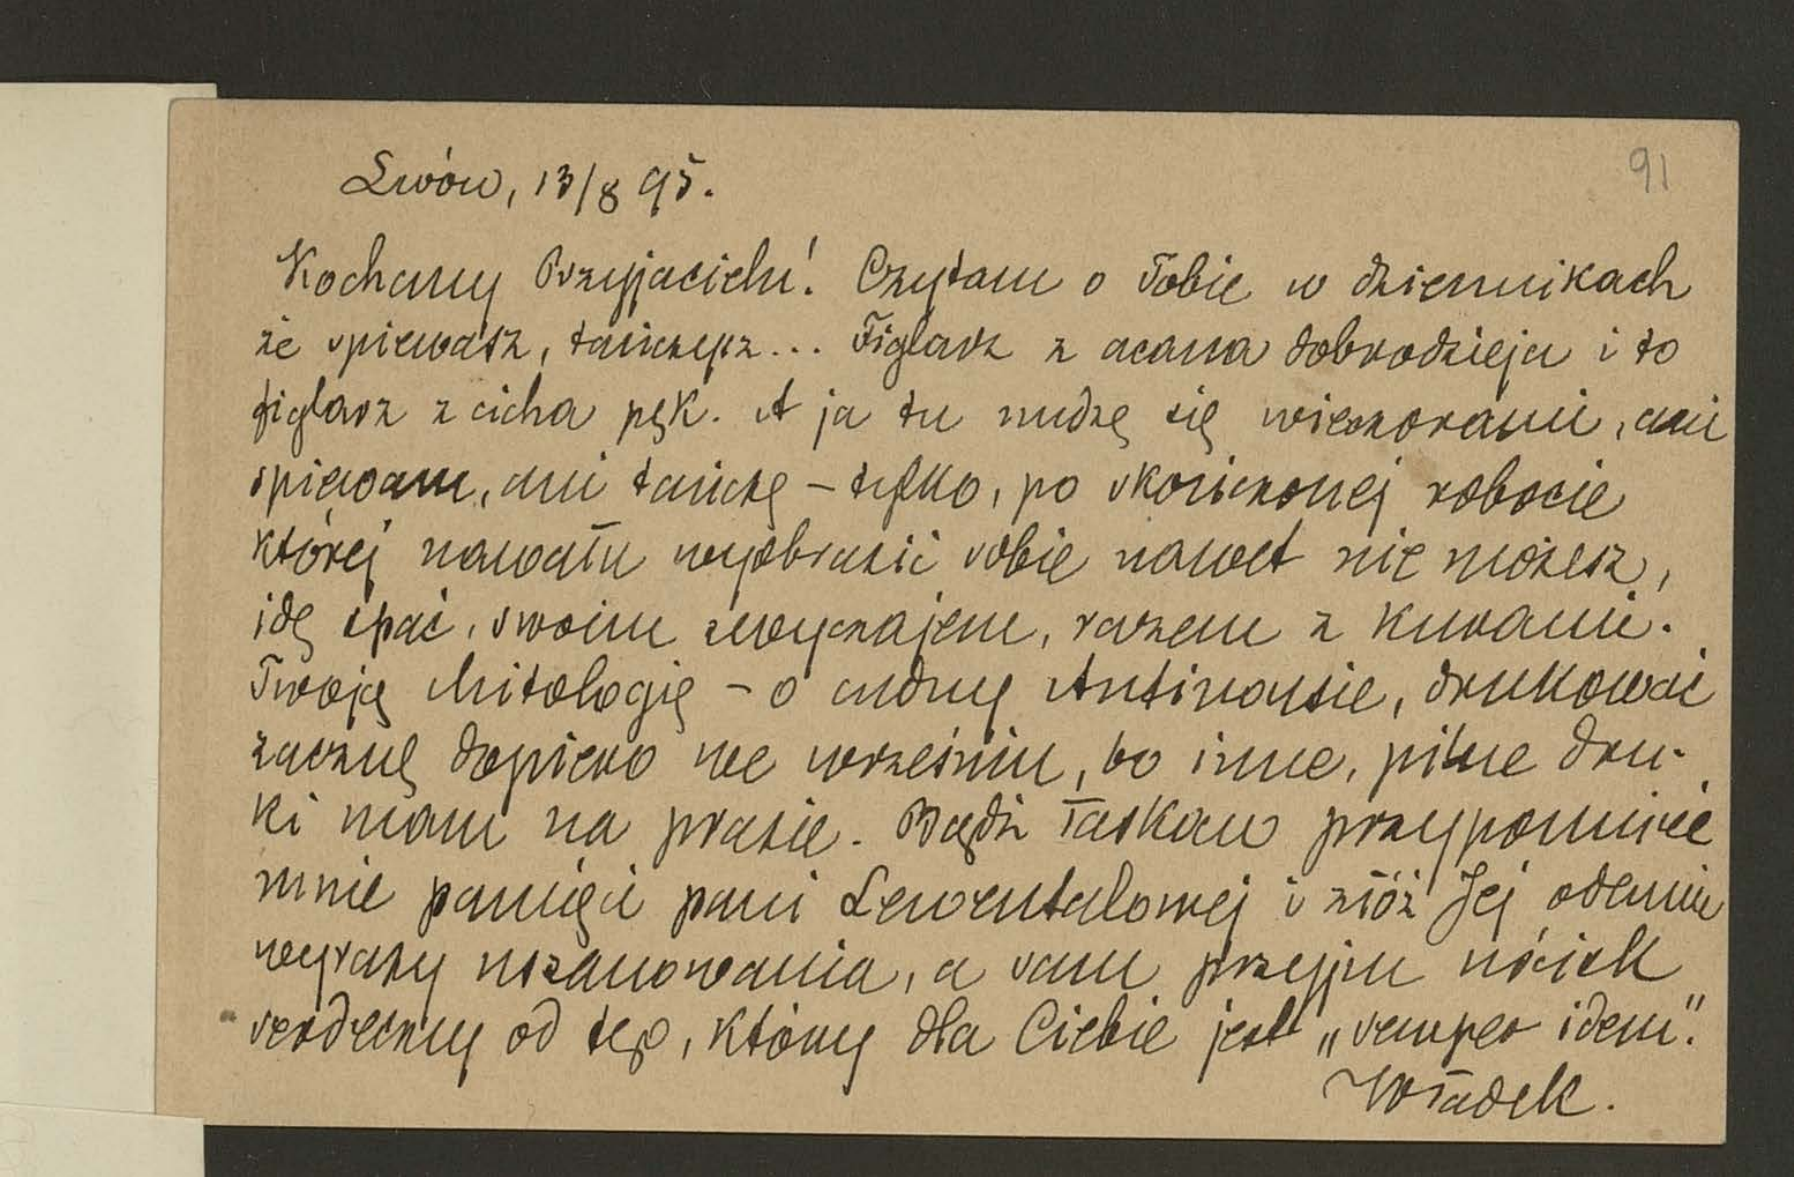 91
Lwów, 13/8 95.
Kochany Przyjacielu! Czytam o Tobie w dziennikach
że śpiewasz, tańczysz... Figlarz z acana dobrodzieja i to
figlarz z cicha pęk. A ja tu nudzę się wieczorami, ani
śpiewam, ani tańczę – tylko, po skończonej robocie
której nawału wyobrazić sobie nawet nie możesz,
idę spać, swoim zwyczajem, razem z kurami.
Twoję Mitologię – o cudny Antinousie, drukować
zacznę dopiero we wrześniu, bo inne, pilne dru-
ki mam na prasie. Bądź łaskaw przypomnieć
mnie pamięci pani Lewentalowej i złóż Jej odemnie
wyrazy uszanowania, a sam przyjm uścisk
serdeczny od tego, który dla Ciebie jest „semper idem".
Władek.